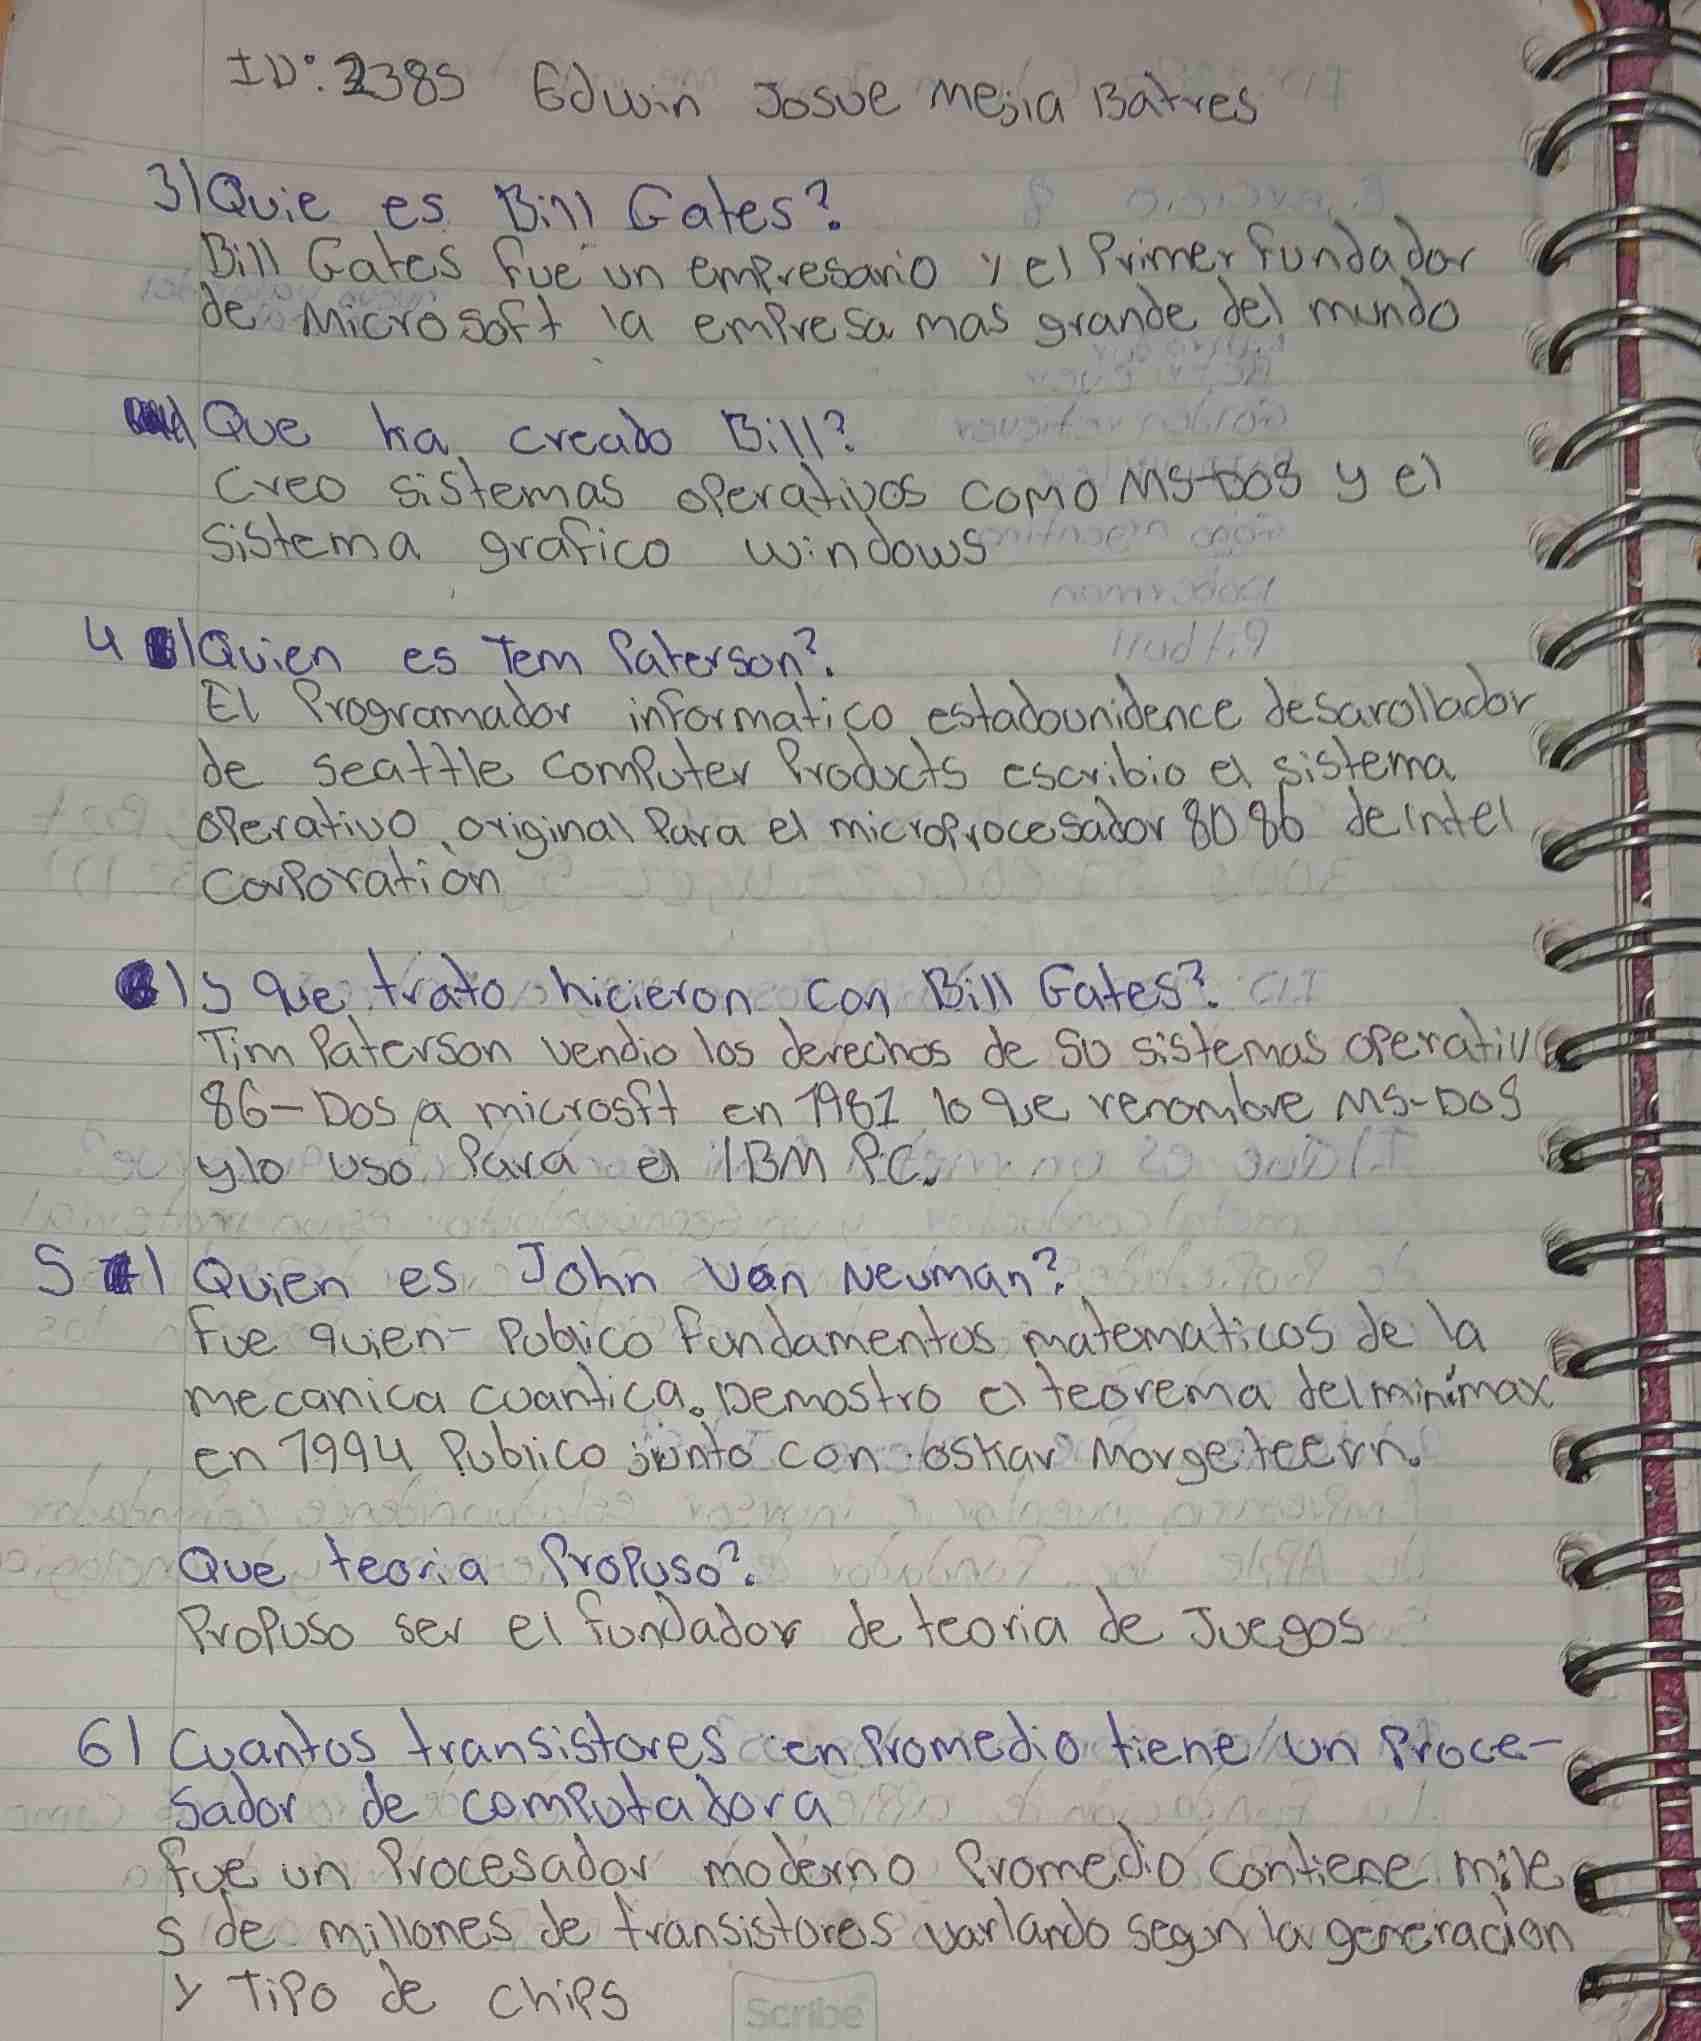 ID: 2385 Edwin Josue Mejia Batres
3) Quie es Bill Gates?
Bill Gates fue un empresario y el Primer fundador
de Microsoft la empresa mas grande del mundo
Que ha creado Bill?
Creo sistemas operativos como MS-DOS y el
sistema grafico windows
4 Quien es Tem Paterson?
El Programador informatico estadounidence desarollador
de Seattle Computer Products escribio el sistema
operativo original Para el microprocesador 8086 de Intel
Corporation
) y que trato hicieron con Bill Gates?
Tim Paterson vendio los derechos de su sistemas operativ
86-Dos a microsft en 1981 lo que renombre MS-DOS
y lo uso Para el IBM PC.
5 ) Quien es John Van Neuman?
Fue quien- Publico fundamentos matematicos de la
mecanica cuantica. Demostro el teorema del minimax
en 1994 Publico junto con oskar Morgeteern.
Que teoria Propuso?
Propuso ser el fundador de teoria de Juegos
6) Cuantos transistores en Promedio tiene un Proce-
sador de computadora
fue un Procesador moderno Promedio contiene mile
s de millones de transistores variando segun la generacion
y Tipo de chips
Scribe